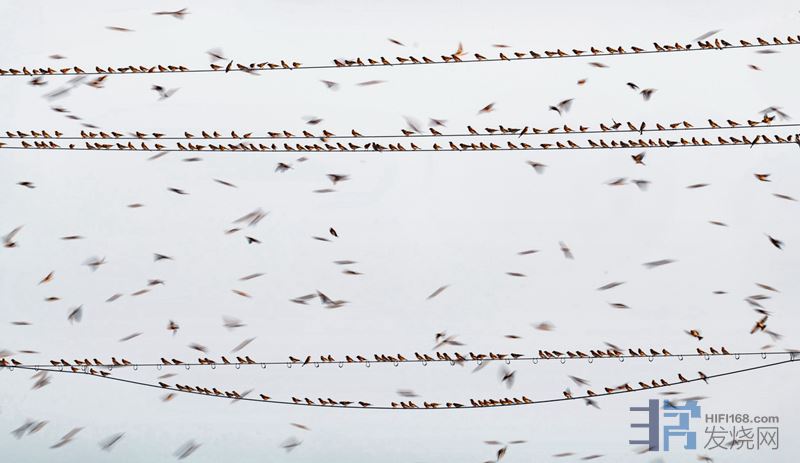 HIFI168.com
发烧网